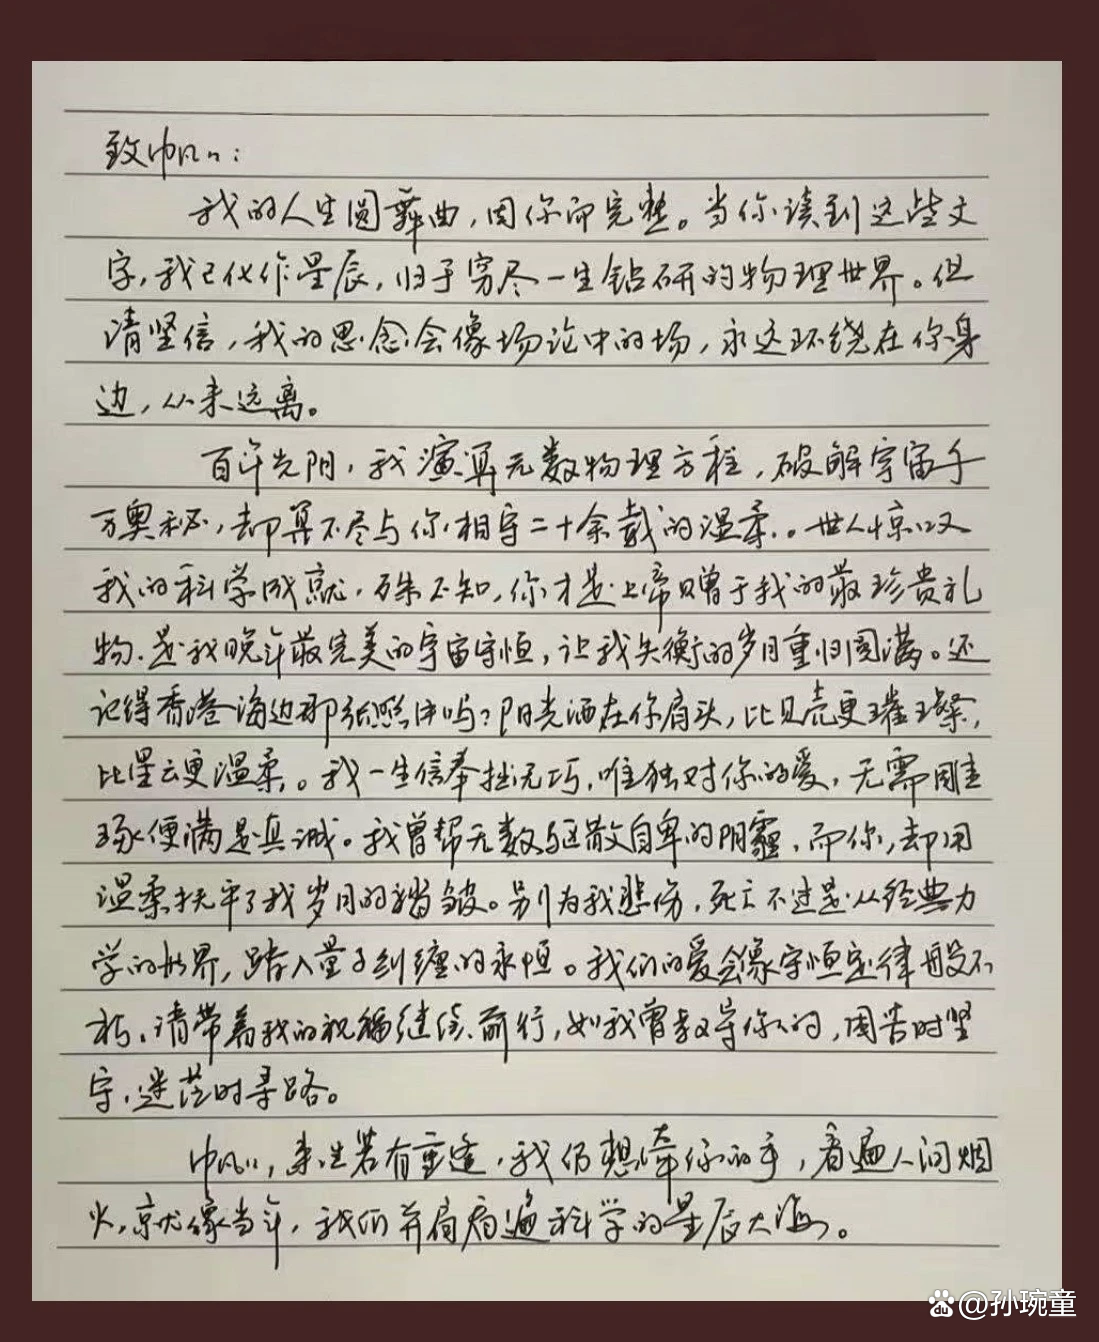 致帆帆:
我的人生圆舞曲，因你而完整。当你读到这些文
字，我已化作星辰，归于穷尽一生钻研的物理世界。但
请坚信，我的思念会像场论中的场，永远环绕在你身
边，从未远离。
百年光阴，我演算无数物理方程，破解宇宙千
万奥秘，却算不尽与你相守二十余载的温柔。世人惊叹
我的科学成就，殊不知，你才是上帝赠于我的最珍贵礼
物.是我晚年最完美的宇宙守恒，让我失衡的岁月重归圆满。还
记得香港海边那张照片吗？阳光洒在你肩头，比贝壳更璀璨，
比星云更温柔。我一生信奉拙沅巧，唯独对你的爱，无需雕
琢便满是真诚。我曾帮无数驱散自卑的阴霾，而你，却用
温柔抚平了我岁月的褶皱。别为我悲伤，死亡不过是从经典力
学的世界，踏入量子纠缠的永恒。我们的爱会像守恒定律般不
朽。请带着我的祝福继续前行，如我曾教导你的，困苦时坚
守，迷茫时寻路。
帆帆，来生若有重逢，我仍想牵你的手，看遍人间烟
火，就像当年，我们并肩看遍科学的星辰大海。
@孙琬童